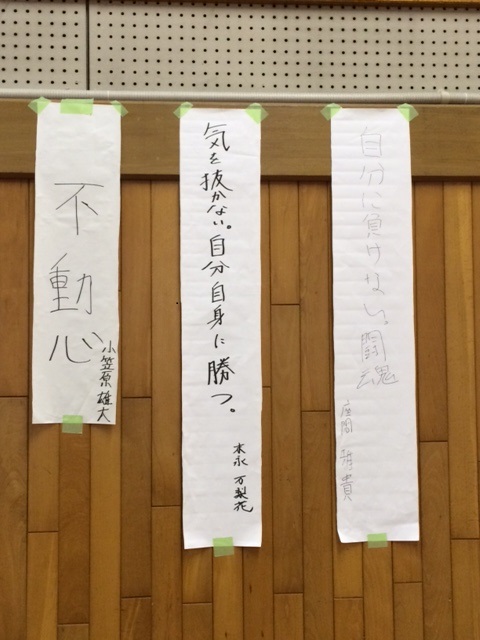 自分に負けない。闘魂
座間 貴
気を抜かない。自分自身に勝つ。
本永 万梨花
不動心
小笠原 雄大